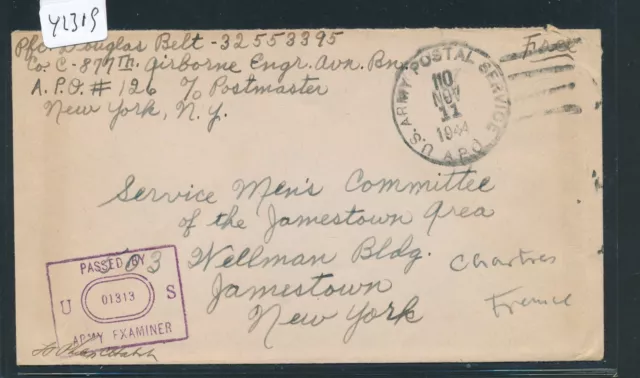 YL319
Pfc. Douglas Belt - 32553395
Co. C - 877th. Airborne Engr. Avn. Bn.
A.P.O. # 126 c/o Postmaster
New York, N.Y.
Free
U.S. ARMY POSTAL SERVICE
A.P.O.
NOV
11
1944
Service Men's Committee
of the Jamestown Area
503 Wellman Bldg.
Jamestown
New York
Chartres
France
PASSED BY
U 01313 S
ARMY EXAMINER